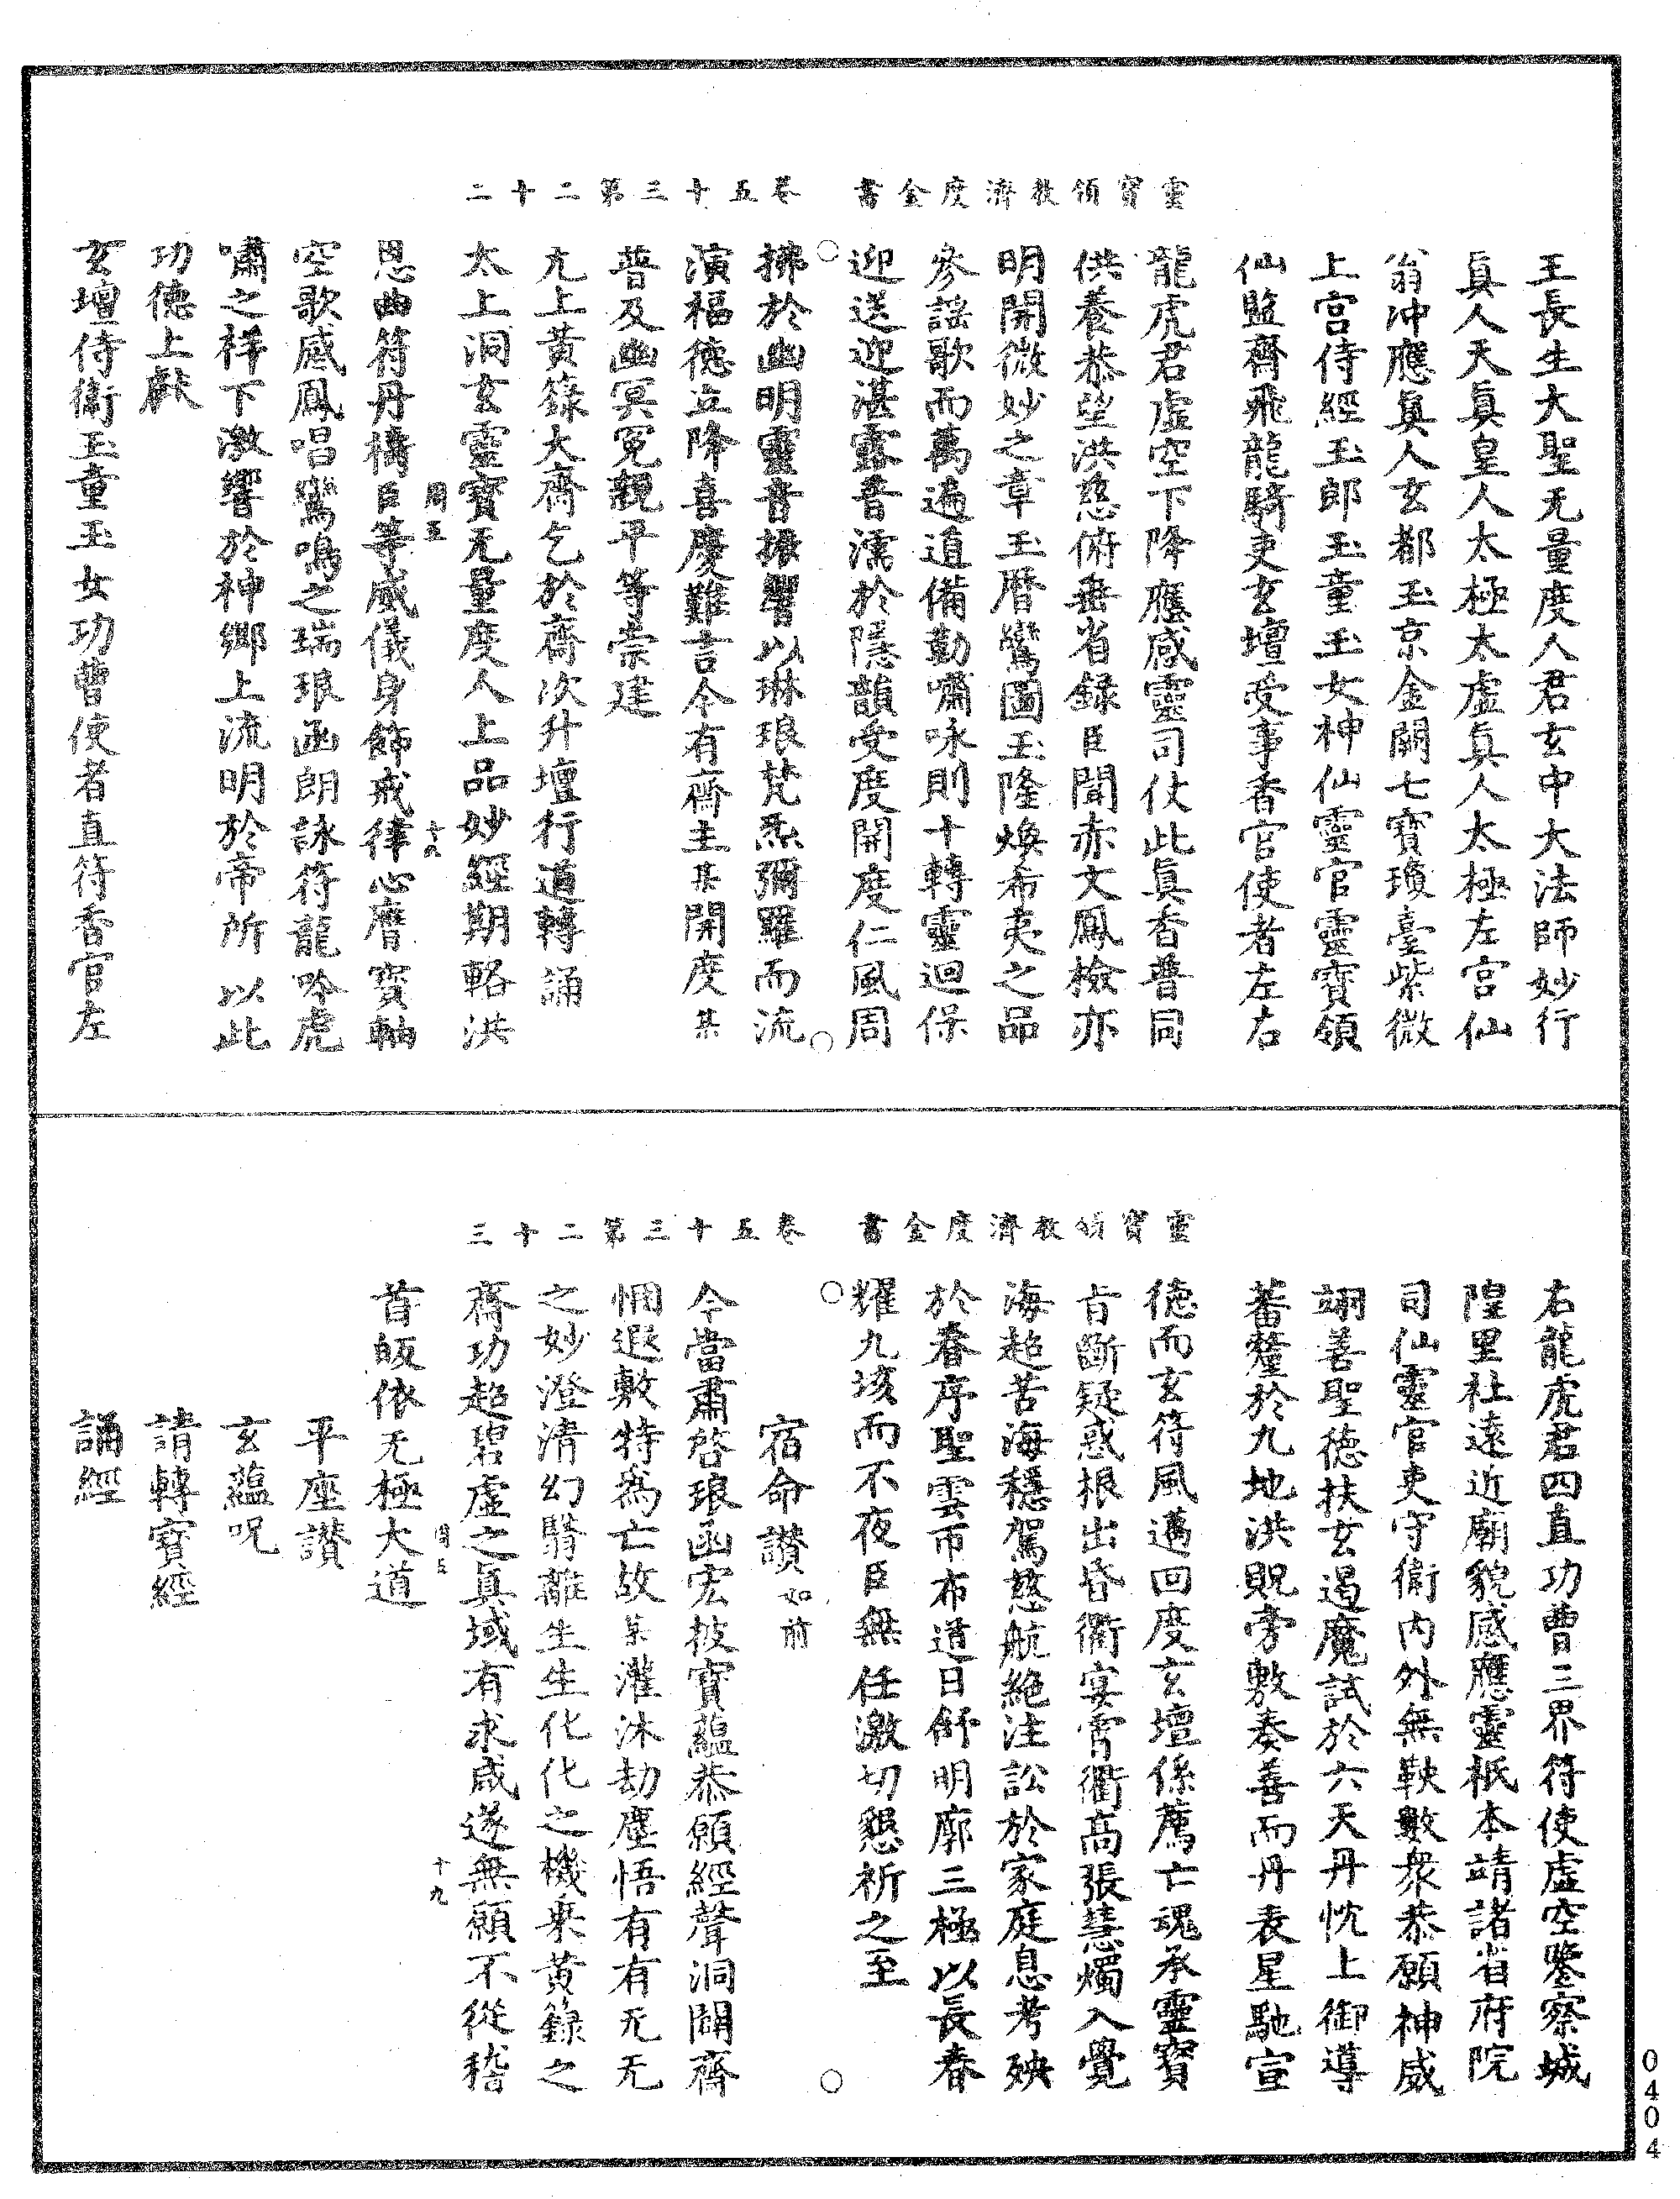 靈寶領教濟度金書
卷五十三第二十二
王長生大聖无量度人君玄中大法師妙行
眞人天眞皇人太極太虛眞人太極左宫仙
翁冲應眞人玄都玉京金闕七寶瓊臺紫微
上宫侍經玉郎玉童玉女神仙靈官靈寶領
仙監齋飛龍騎吏玄壇受事香官使者左右
龍虎君虛空下降應感靈司仗此眞香普同
供養恭望洪慈俯垂省録臣聞赤文鳳檢亦
明開微妙之章玉曆鸞圖玉隆煥布夷之品
參謡歌而萬遍道備勤嘯咏則十轉靈迴保
迎送迎湛露音濡於隱韻受度開度仁風周
拂於幽明靈音振響以琳琅梵炁彌羅而流
演福德立降喜慶難言今有齋主某開度某
普及幽冥冤親平等崇建
亢上黄籙大齋乞於齋次升壇行道轉誦
太上洞玄靈寶无量度人上品妙經期輅洪
恩曲符丹禱臣等威儀身飾戒律心磨寳軸
周五
十八
空歌感鳳唱鸞鳴之瑞琅函朗詠符龍吟虎
嘯之祥下激響於神鄉上流明於帝所以此
功德上獻
玄壇侍衛玉童玉女功曹使者直符香官左
靈寶領教濟度金書
卷五十三第二十三
右龍虎君四直功曹三界符使虛空鑒察城
隍里社遠近廟貌感應靈祇本靖諸省府院
司仙靈官吏守衛内外無鞅數衆恭願神威
翊善聖德扶玄遏魔試於六天丹忱上御導
蕃釐於九地洪貺旁敷奏善而丹表星馳宣
德而玄符風邁回度玄壇係薦亡魂承靈寶
肯斷疑惑根出昏衢宴霄衢高張慧燭入覺
海超苦海穩駕慈航絶注訟於家庭息考殃
於春序聖雲帀布道日舒明廓三極以長春
耀九垓而不夜臣無任激切懇祈之至
宿命讃如前
今當肅啓琅函宏披寶蘊恭願經聲洞闢齋
悃遐敷特爲亡故某灌沐劫塵悟有有无无
之妙澄清幻翳離生生化化之機乗黄籙之
齋功超碧虛之眞域有求咸遂無願不從稽
首皈依无極大道
周五
十九
平座讃
玄蘊呪
請轉寳經
誦經
0404